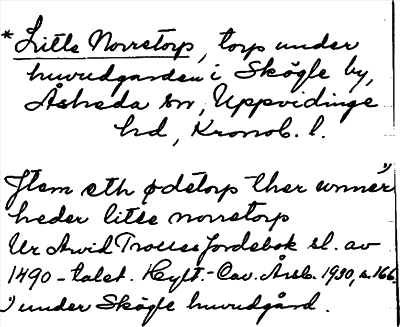 * Litle Norretorp, torp under
huvudgården i Skögle by,
Åsheda sn, Uppvidinge
hd, Kronob. l.
Jtem eth ødetorp ther wnner 1)
heder litle norretorp
Ur Arvid Trolles Jordebok sl. av
1490-talet. Hylt.-Cav. Årsb. 1930, s. 166.
1) under Skögle huvudgård.